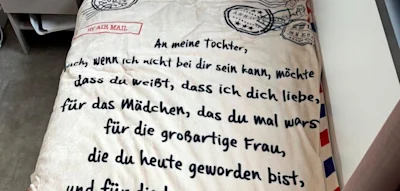 BY AIR MAIL
An meine Tochter,
auch, wenn ich nicht bei dir sein kann, möchte
dass du weißt, dass ich dich liebe,
für das Mädchen, das du mal warst
für die großartige Frau,
die du heute geworden bist,
und für die